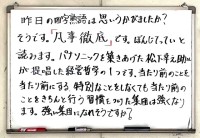 昨日の四字熟語は思いうかびましたか?
そうです。「凡事徹底」です。ぼんじてっていと
読みます。パナソニックを築きあげた松下幸之助
が提唱した経営哲学の1つです。当たり前のことを
当たり前にする 特別なことをしなくても当たり前の
ことをきちんと行う習慣をつけた集団は強くなりま
す。強い集団になれそうですか?